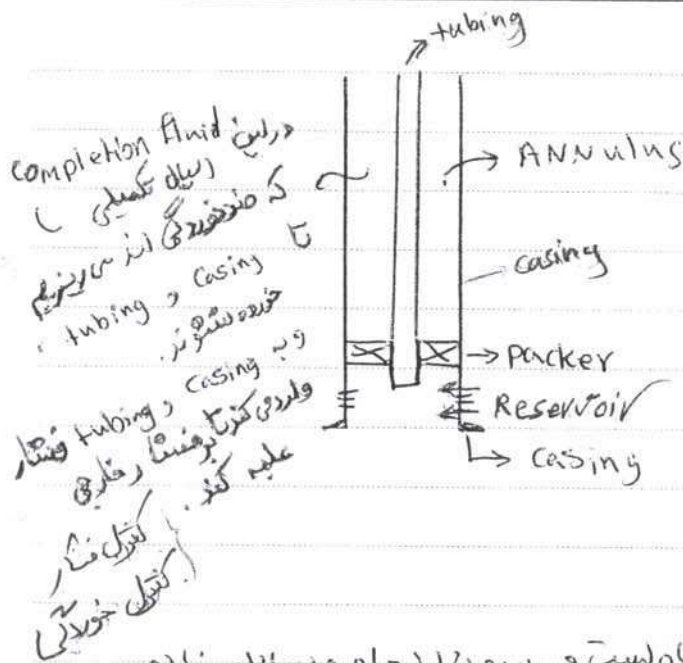 tubing
ANNULUS
casing
Packer
Reservoir
casing
در این completion fluid
(سیال تکمیلی)
که ضدخوردگی اند می‌ریزیم
تا
tubing و casing
خورده نشوند.
و به casing و tubing فشار
وارد می‌کند تا بر فشار خارجی
غلبه کند.
کنترل فشار
کنترل خوردگی